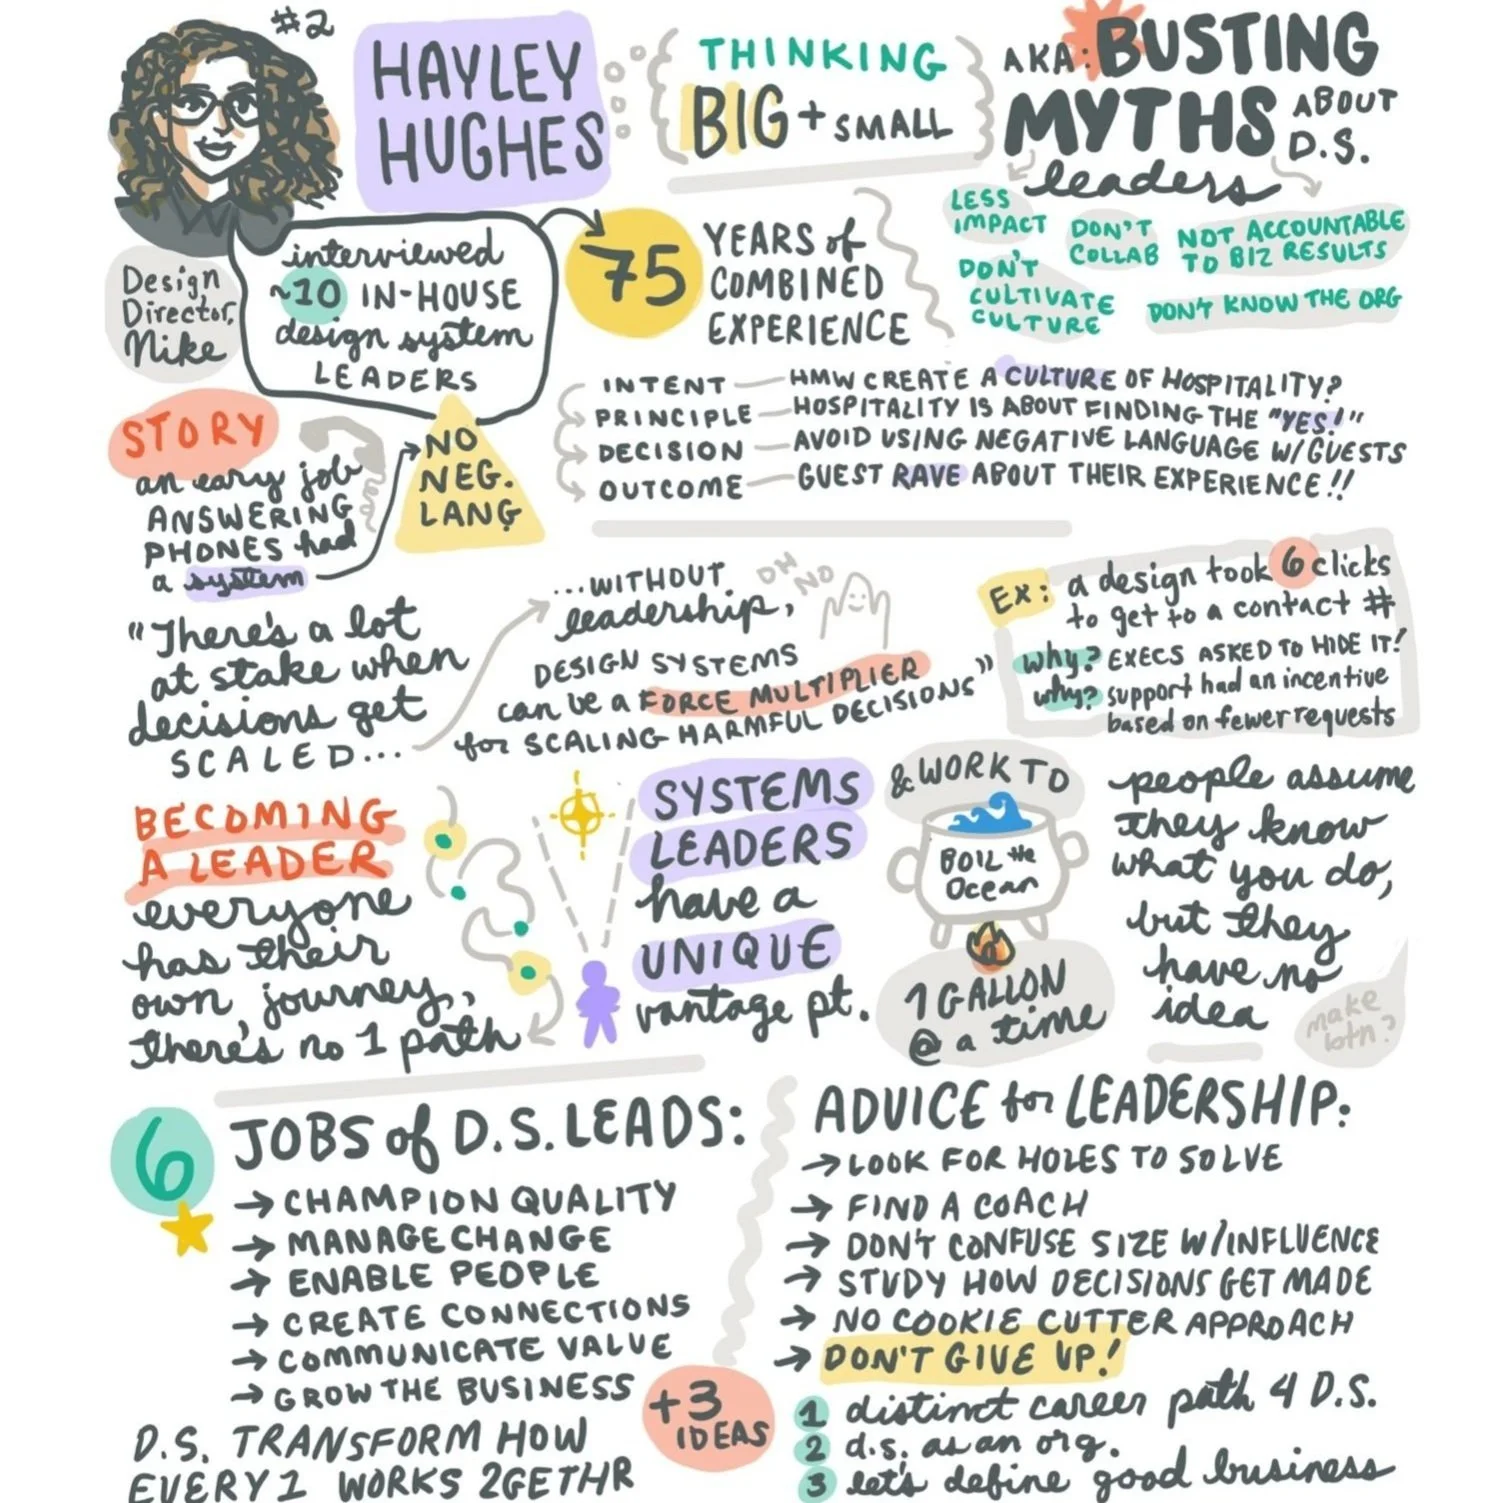 #2
HAYLEY
HUGHES
THINKING
BIG + SMALL
AKA: BUSTING
MYTHS ABOUT
D.S.
leaders
LESS
IMPACT
DON'T
COLLAB
NOT ACCOUNTABLE
TO BIZ RESULTS
DON'T
CULTIVATE
CULTURE
DON'T KNOW THE ORG
Design
Director,
Nike
interviewed
~10 IN-HOUSE
design system
LEADERS
75
YEARS of
COMBINED
EXPERIENCE
INTENT — HMW CREATE A CULTURE OF HOSPITALITY?
PRINCIPLE — HOSPITALITY IS ABOUT FINDING THE "YES!"
DECISION — AVOID USING NEGATIVE LANGUAGE W/GUESTS
OUTCOME — GUEST RAVE ABOUT THEIR EXPERIENCE!!
STORY
an early job
ANSWERING
PHONES had
a system
NO
NEG.
LANG
"There's a lot
at stake when
decisions get
SCALED...
...WITHOUT
leadership,
OH
NO
DESIGN SYSTEMS
can be a FORCE MULTIPLIER
for SCALING HARMFUL DECISIONS"
EX: a design took 6 clicks
to get to a contact #
why? EXECS ASKED TO HIDE IT!
why? support had an incentive
based on fewer requests
BECOMING
A LEADER
everyone
has their
own journey,
there's no 1 path
SYSTEMS
LEADERS
have a
UNIQUE
vantage pt.
& WORK TO
BOIL the
Ocean
1 GALLON
@ a time
people assume
they know
what you do,
but they
have no
idea
make
btn?
6 JOBS of D.S. LEADS:
→ CHAMPION QUALITY
→ MANAGE CHANGE
→ ENABLE PEOPLE
→ CREATE CONNECTIONS
→ COMMUNICATE VALUE
→ GROW THE BUSINESS
D.S. TRANSFORM HOW
EVERY1 WORKS 2GETHR
ADVICE for LEADERSHIP:
→ LOOK FOR HOLES TO SOLVE
→ FIND A COACH
→ DON'T CONFUSE SIZE W/INFLUENCE
→ STUDY HOW DECISIONS GET MADE
→ NO COOKIE CUTTER APPROACH
→ DON'T GIVE UP!
+3
IDEAS
1 distinct career path 4 D.S.
2 d.s. as an org.
3 let's define good business